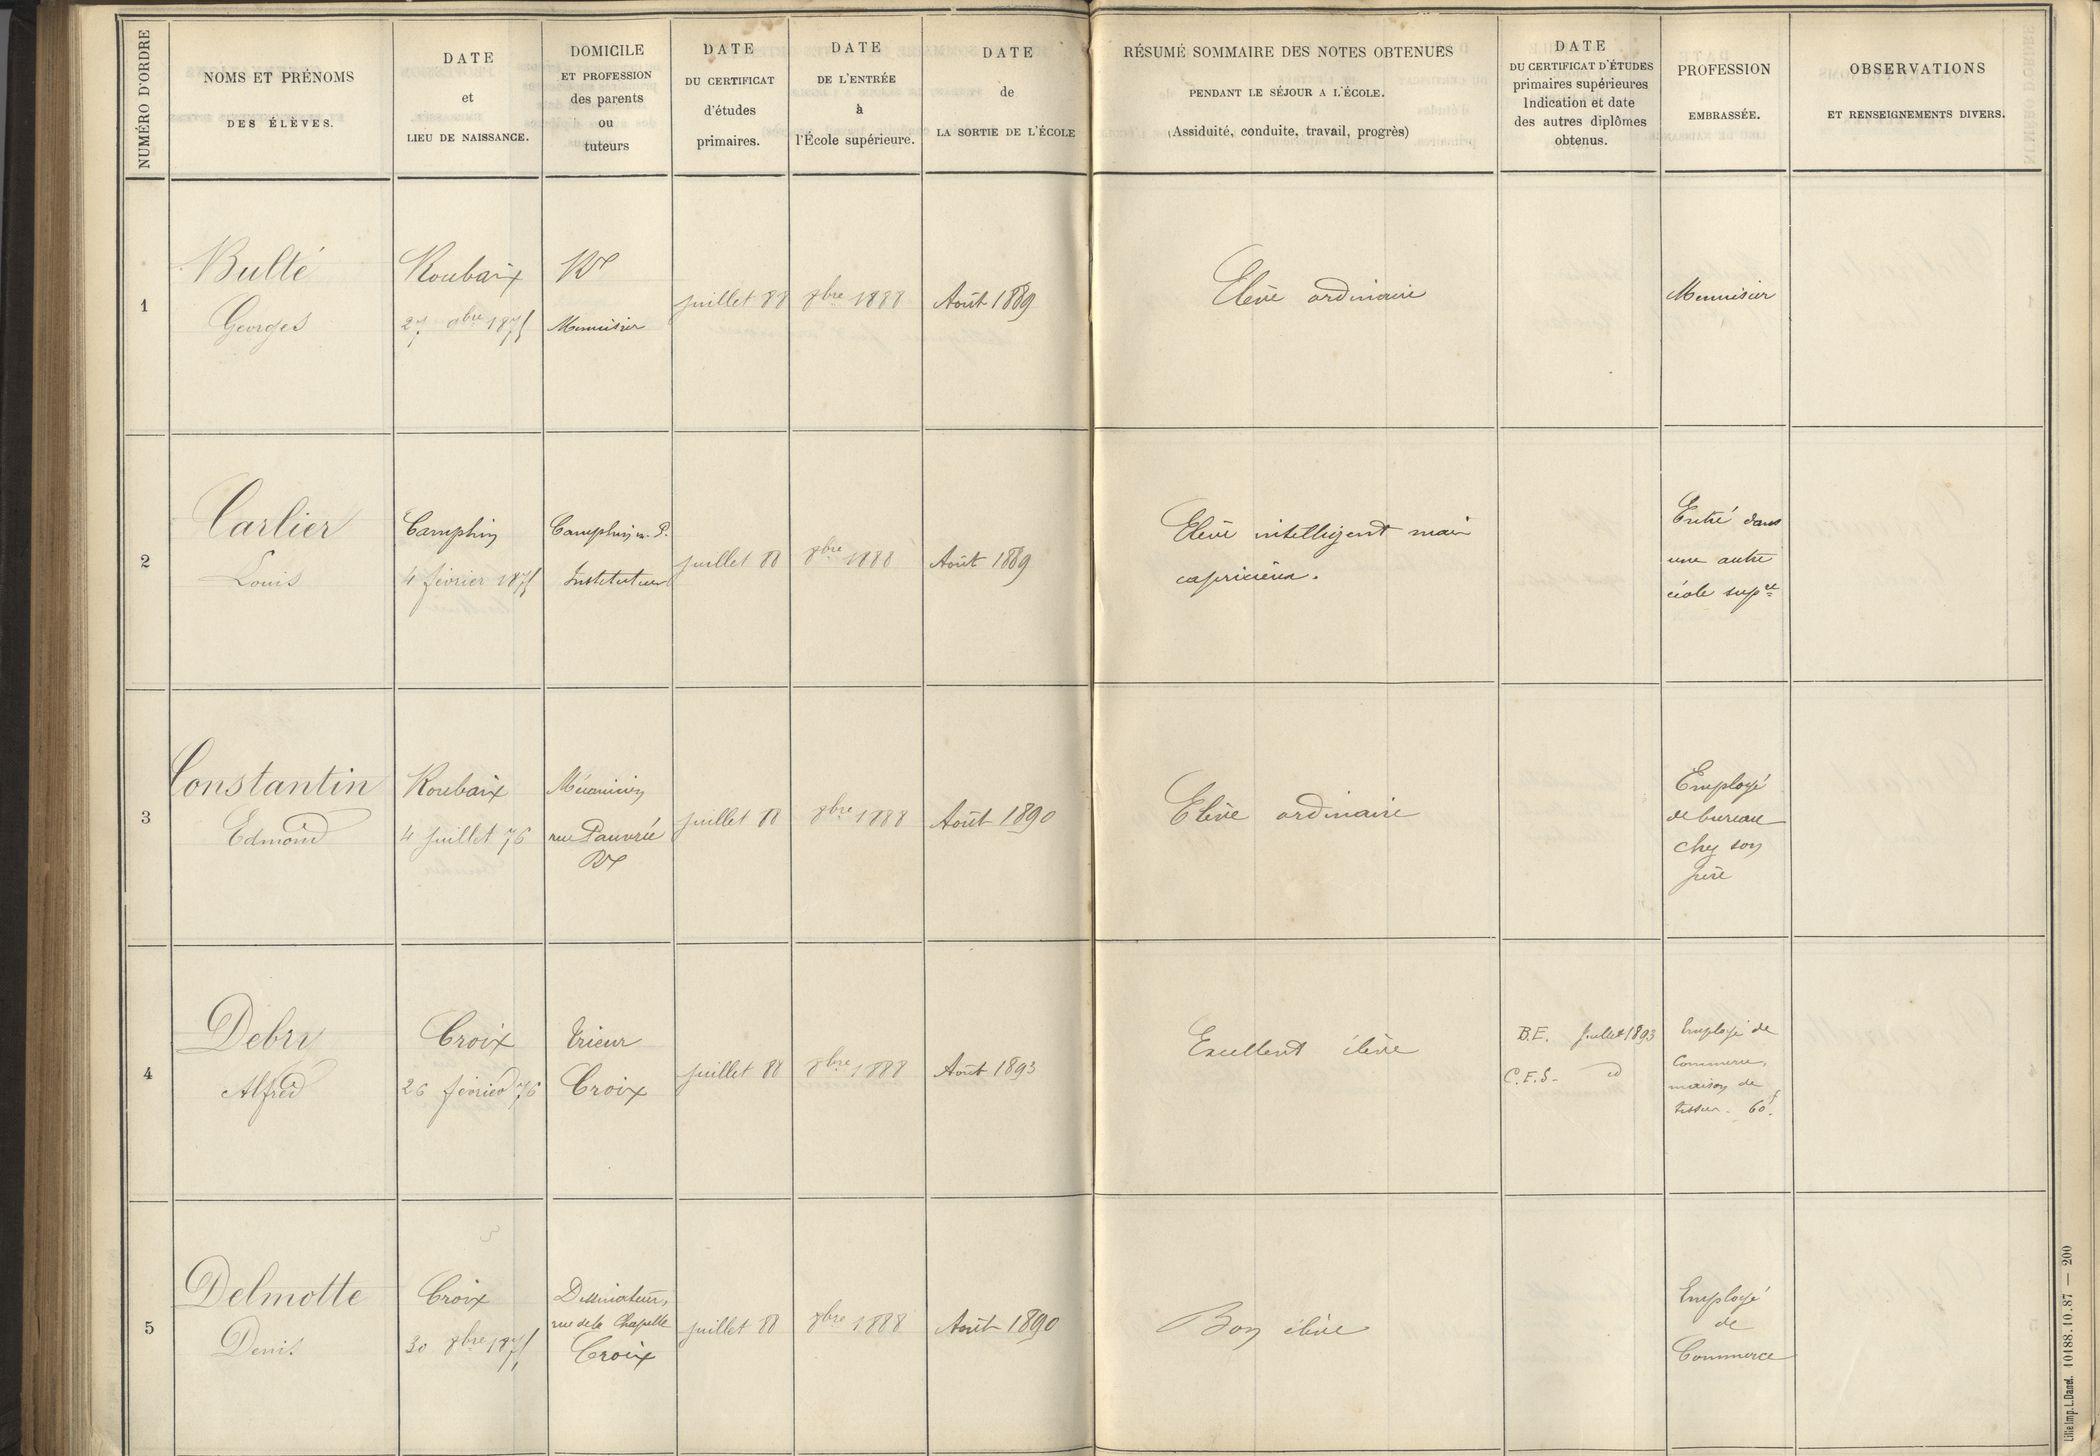 NUMÉRO D'ORDRE
NOMS ET PRÉNOMS
DES ÉLÈVES.
DATE
et
LIEU DE NAISSANCE.
DOMICILE
ET PROFESSION
des parents
ou
tuteurs
DATE
DU CERTIFICAT
d'études
primaires.
DATE
DE L'ENTRÉE
à
l'École supérieure.
DATE
de
LA SORTIE DE L'ÉCOLE
RÉSUMÉ SOMMAIRE DES NOTES OBTENUES
PENDANT LE SÉJOUR A L'ÉCOLE.
(Assiduité, conduite, travail, progrès)
DATE
DU CERTIFICAT D'ÉTUDES
primaires supérieures
Indication et date
des autres diplômes
obtenus.
PROFESSION
EMBRASSÉE.
OBSERVATIONS
ET RENSEIGNEMENTS DIVERS.
1
Bulté
Georges
Roubaix
27 9bre 1875
Rx
Menuisier
juillet 88
8bre 1888
Août 1889
Elève ordinaire
Menuisier
2
Carlier
Louis
Camphin
4 février 1875
Camphin en P.
Instituteur
juillet 88
8bre 1888
Août 1889
Elève intelligent mais
capricieux.
Entré dans
une autre
école supre
3
Constantin
Edmond
Roubaix
4 juillet 76
Mécanicien
rue Pauvrée
Rx
juillet 88
8bre 1888
Août 1890
Elève ordinaire
Employé
de bureau
chez son
père
4
Debry
Alfred
Croix
26 février 76
trieur
Croix
juillet 88
8bre 1888
Août 1893
Excellent élève
B.E. Juillet 1893
C.E.S. - id
Employé de
Commerce,
maison de
tissus. 60f.
5
Delmotte
Denis
Croix
30 8bre 1875
Dessinateur,
rue de la Chapelle
Croix
juillet 88
8bre 1888
Août 1890
Bon élève
Employé
de
Commerce
Lille Imp. L. Danel. 10188.10.87 — 200